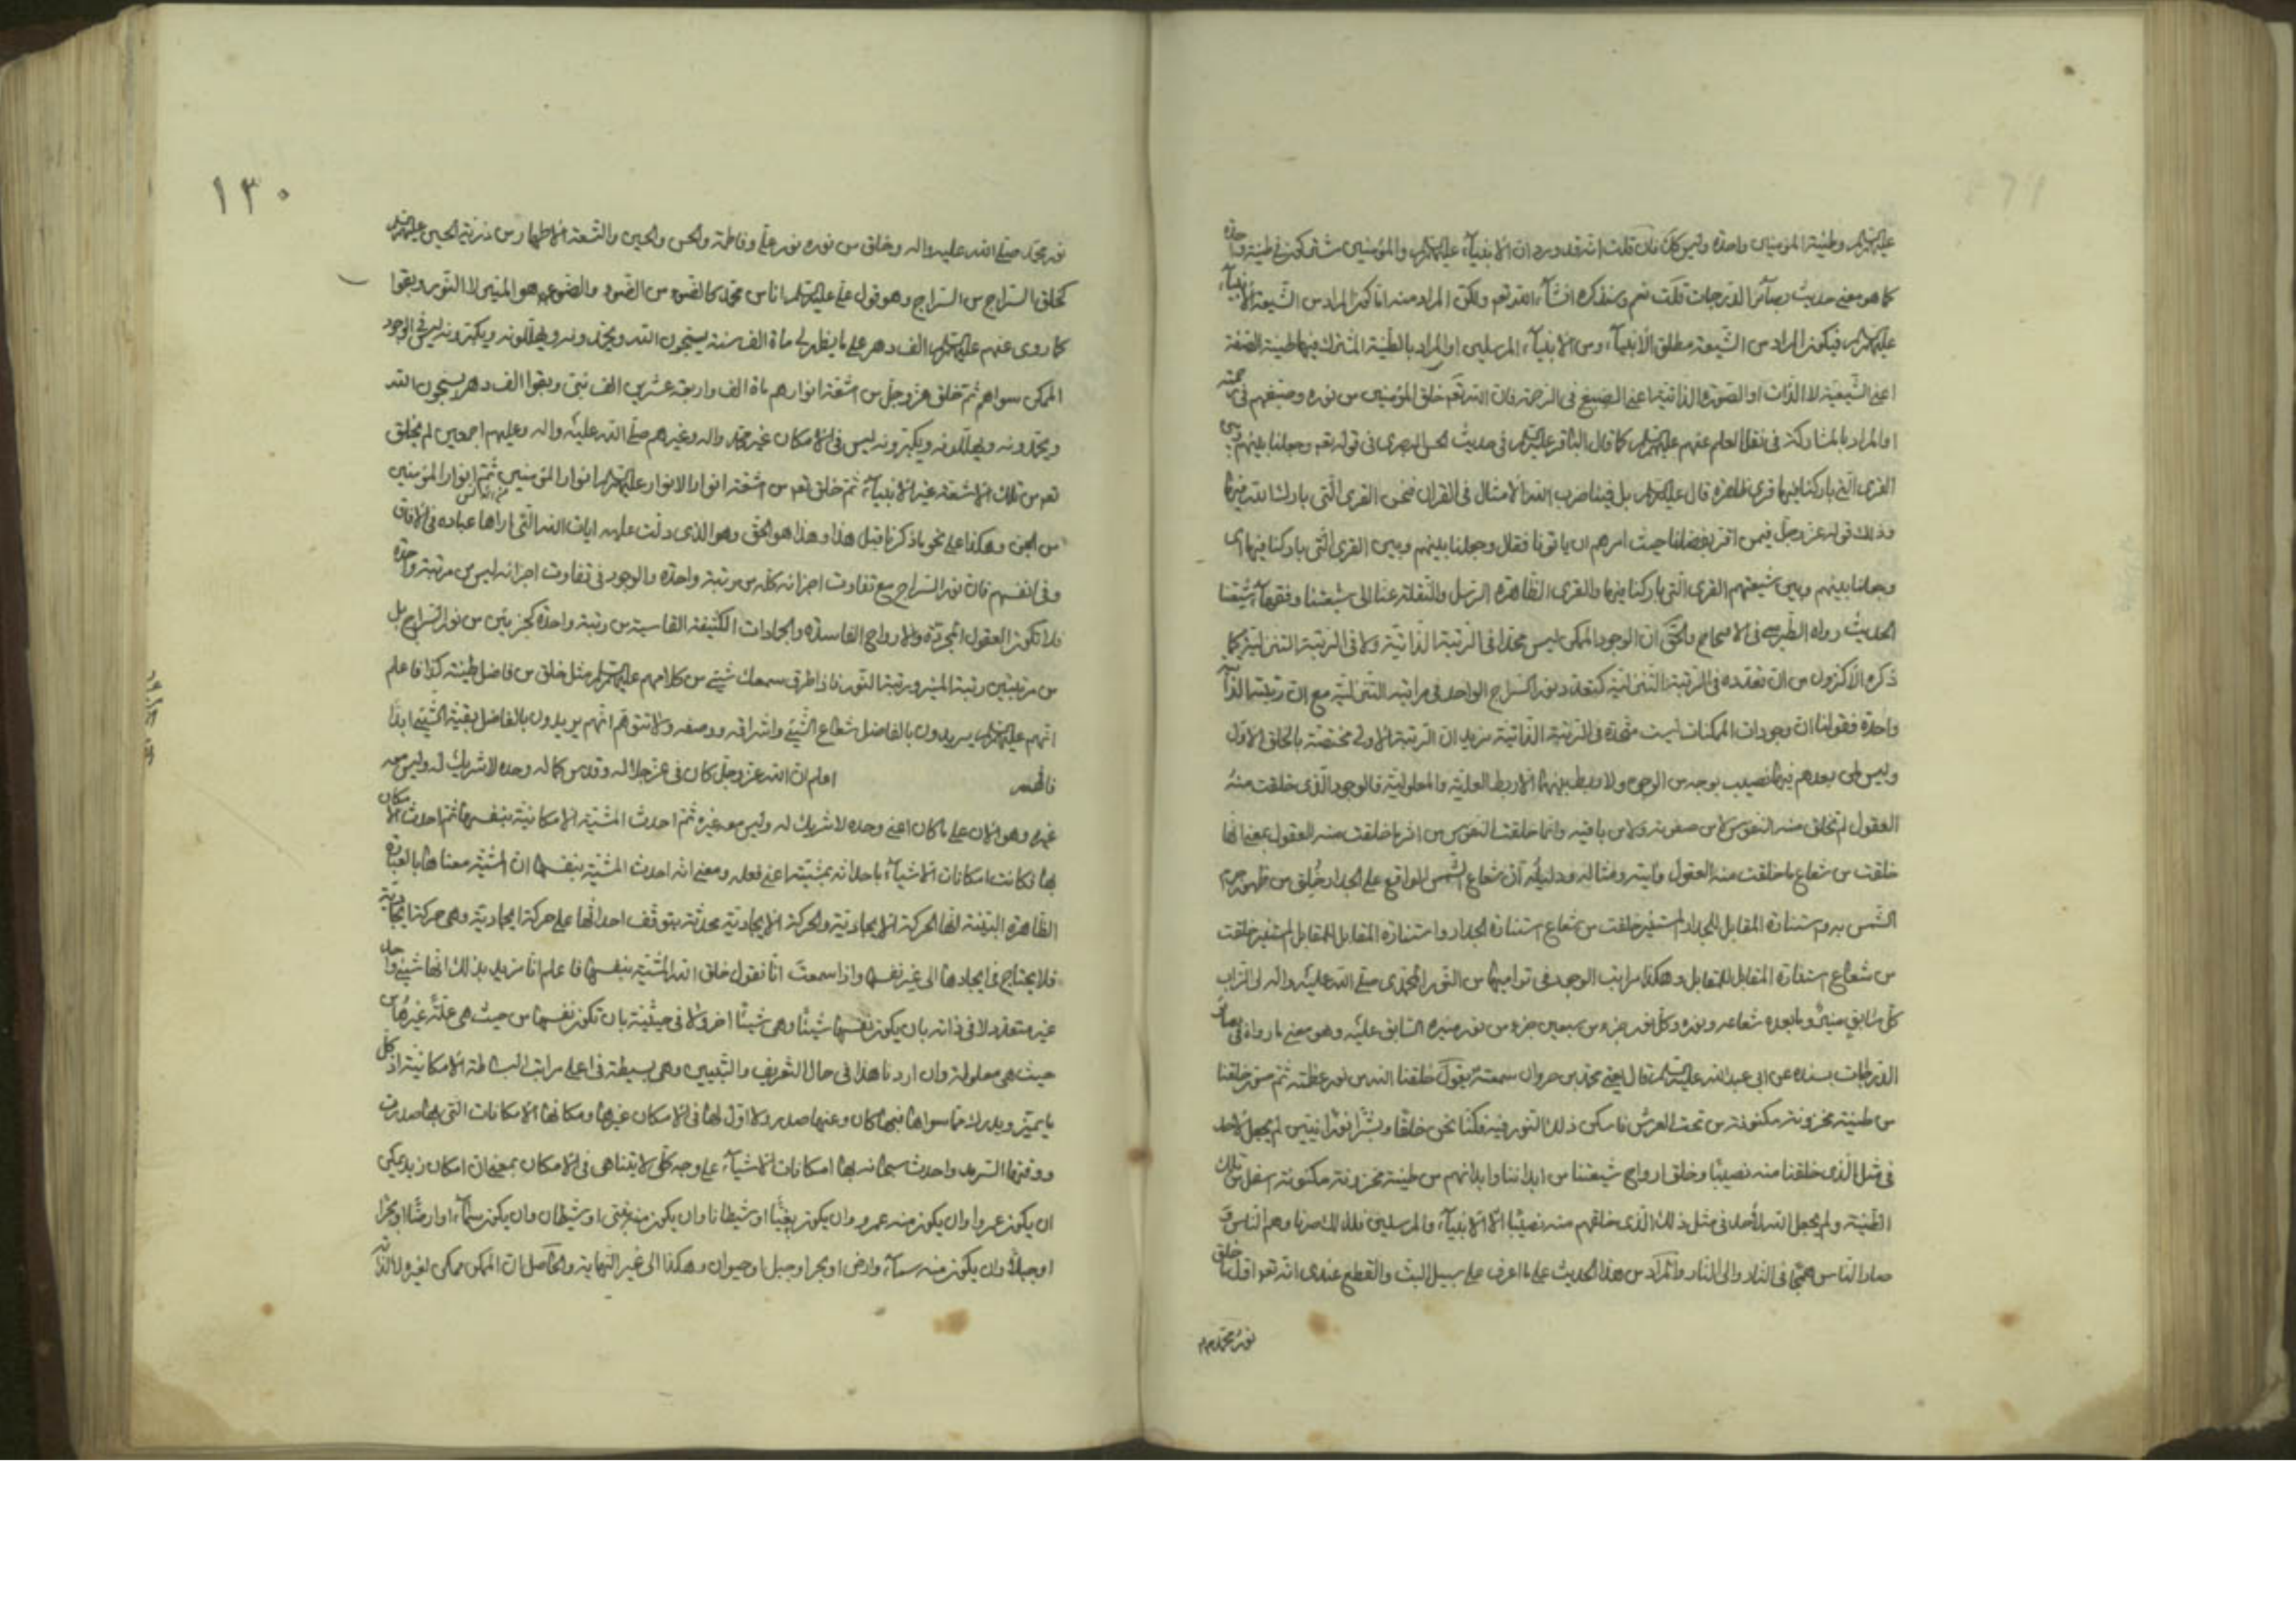 عليهم السلام وطينة المؤمنين واحدة وليس كك فان قلت انه قد ورد ان الانبياء عليهم السلام والمؤمنين مشتركون في طينة واحدة
كما هو معنى حديث بصائر الدرجات قلت نعم وسنذكره انشاء الله تعم ولكن المراد منه اما كون المراد من الشيعة الانبياء
عليهم السلام فيكون المراد من الشيعة مطلق الانبياء ومن الانبياء المرسلين او المراد بالطينة المشترك فيها طينة الصفة
اعني الشيعية لا الذات او الصورة الذاتية اعني الصبغ في الرحمة فان الله تعم خلق المؤمنين من نوره وصبغهم في رحمته
او المراد بالمشاركة في نقل العلم عنهم عليهم السلام كما قال الباقر عليه السلام في حديث الحسن البصري في قوله تعم وجعلنا بينهم وبين
القرى التي باركنا فيها قرى ظاهرة قال عليه السلام بل فينا ضرب الله الامثال في القران فنحن القرى التي بارك الله فيها
وذلك قوله عز وجل فيمن اقر بفضلنا حيث امرهم ان ياتونا فقال وجعلنا بينهم وبين القرى التي باركنا فيها اي
وجعلنا بينهم وبين شيعتهم القرى التي باركنا فيها والقرى الظاهرة الرسل والنقلة عنا الى شيعتنا وفقهاء شيعتنا
الحديث رواه الطبرسي في الاحتجاج والحق ان الوجود الممكن ليس متحدا في الرتبة الذاتية ولا في الرتبة التنزلية كما
ذكره الاكثرون من ان تعدده في الرتبة التنزلية كتعدد نور السراج الواحد في مراتبه التنزلية مع ان رتبته الذاتية
واحدة فقولنا ان وجودات الممكنات ليست متحدة في الرتبة الذاتية نريد ان الرتبة الاولى مختصة بالخلق الاول
وليس لمن بعدهم فيها نصيب بوجه من الوجوه ولا ربط بينهما الا ربط العلية والمعلولية فالوجود الذي خلقت منه
العقول لم تخلق منه النفوس لا من صفوته ولا من باقيه وانما خلقت النفوس من اثر ما خلقت منه العقول بمعنى انها
خلقت من شعاع ما خلقت منه العقول وايته ومثاله ودليله ان شعاع الشمس الواقع على الجدار خلق من ظهور جرم
الشمس به واستنارة المقابل للجدار المستنير خلقت من شعاع استنارة الجدار واستنارة المقابل للمقابل المستنير خلقت
من شعاع استنارة المقابل للمقابل وهكذا مراتب الوجود في تواليها من النور المحمدي صلى الله عليه واله الى التراب
كل سابق منير وما بعده شعاعه ونوره وكل نور جزء من سبعين جزء من نور منيره السابق عليه وهو معنى ما رواه في بصائر
الدرجات بسنده عن ابي عبد الله عليه السلام قال يعني محمد بن مروان سمعته يقول خلقنا الله من نور عظمته ثم صور خلقنا
من طينة مخزونة مكنونة من تحت العرش فاسكن ذلك النور فيه فكنا نحن خلقا وبشرا نورانيين لم يجعل لاحد
في مثل الذي خلقنا منه نصيبا وخلق ارواح شيعتنا من ابداننا وابدانهم من طينة مخزونة مكنونة اسفل من تلك
الطينة ولم يجعل الله لأحد في مثل ذلك الذي خلقهم منه نصيبا الا الانبياء والمرسلين فلذلك صرنا وهم الناس و
صار الناس همجا في النار والى النار والمراد من هذا الحديث على ما اعرف على سبيل البت والقطع عندي انه تعم اول ما خلق
نور محمد ص م
١٣٠
نور محمد صلى الله عليه واله وخلق من نوره نور علي وفاطمة والحسن والحسين والتسعة الاطهار من ذرية الحسين عليهم السلام
كخلق السراج من السراج وهو قول علي عليه السلام انا من محمد كالضوء من الضوء والضوء هو المنير لا النور وبقوا
كما روى عنهم عليهم السلام الف دهر على ما يظهر لي ماة الف سنة يسبحون الله ويحمدونه ويهللونه ويكبرونه ليس في الوجود
الممكن سواهم ثم خلق عز وجل من اشعة انوارهم ماة الف واربعة عشرين الف نبي وبقوا الف دهر يسبحون الله
ويحمدونه ويهللونه ويكبرونه ليس في الامكان غير محمد واله وغيرهم صلى الله عليه واله وعليهم اجمعين لم يخلق
تعم من تلك الاشعة غير الانبياء ثم خلق تعم من اشعة انوار الانوار عليهم السلام انوار المؤمنين ثم انوار المؤمنين
من الجن وهكذا على نحو ما ذكرنا قبل هذا وهذا هو الحق وهو الذي دلت عليه ايات الله التي اراها عباده في الافاق
وفي انفسهم فان نور السراج مع تفاوت اجزائه كله من رتبة واحدة والوجود في تفاوت اجزائه ليس من مرتبة واحدة
فلا تكون العقول المجردة والارواح الفاسدة والجمادات الكثيفة القاسية من رتبة واحدة كجزئين من نور السراج بل
من رتبتين رتبة المنير ورتبة النور فاذا طرق سمعك شيئ من كلامهم عليهم السلام مثل خلق من فاضل طينة كذا فاعلم
انهم عليهم السلام يريدون بالفاضل شعاع الشيئ واشراقه ووصفه ولا تتوهم انهم يريدون بالفاضل بقية الشيئ ابدا
فافهم اعلم ان الله عز وجل كان في عز جلاله وقدس كماله وحده لا شريك له وليس معه
غيره وهو الان على ما كان اعني وحده لا شريك له وليس معه غيره ثم احدث المشية الامكانية بنفسها ثم احدث الامكان
بها فكانت امكانات الاشياء باحداثه بمشيته اعني فعله ومعنى انه احدث المشية بنفسها ان المشية معناها بالعبارة
الظاهرة البينة انها الحركة الايجادية والحركة الايجادية محدثة يتوقف احداثها على حركة ايجادية وهي حركة ايجادية
فلا يحتاج في ايجادها الى غير نفسها واذا سمعت انا نقول خلق الله المشية بنفسها فاعلم انا نريد بذلك انها شيئ واحد
غير متعدد لا في ذاته بان يكون نفسها شيئا وهي شيئا اخر ولا في حيثية بان تكون نفسها من حيث هي علة غيرها من
حيث هي معلولة وان اردنا هذا في حال التعريف والتبيين وهي بسيطة في اعلى مراتب البساطة الامكانية اذ كل
ما يتميز ويدرك مما سواها فبها كان وعنها صدر ولا اول لها في الامكان غيرها ومكانها الامكانات التي بها صدرت
ووقتها السرمد واحدث سبحانه بها امكانات الاشياء على وجه كلي لا يتناهى في الامكان بمعنى ان امكان زيد يمكن
ان يكون عمروا وان يكون منه عمرو وان يكون نبيا او شيطانا وان يكون منه نبي او شيطان وان يكون سماء او ارضا او بحرا
او جبلا وان يكون منه سماء وارض او بحر او جبل او حيوان وهكذا الى غير النهاية والحاصل ان الممكن ممكن لغيره لا لذاته